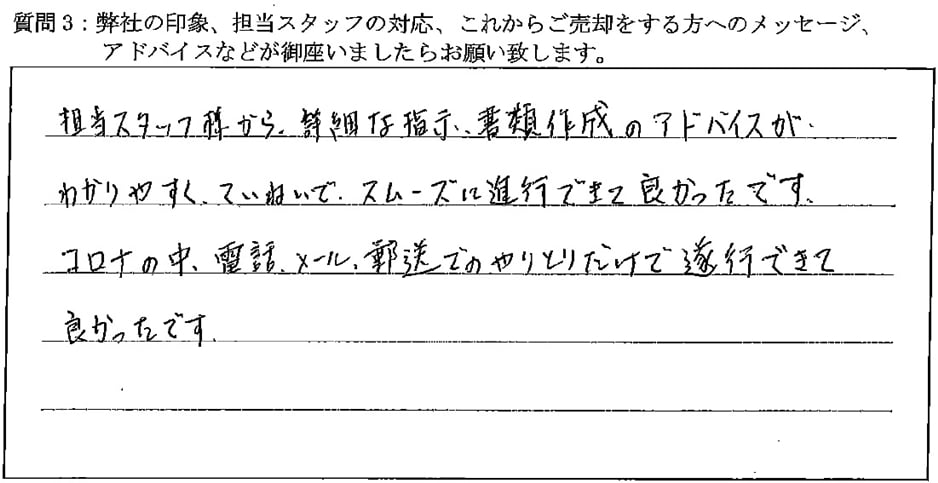 質問3：弊社の印象、担当スタッフの対応、これからご売却をする方へのメッセージ、
アドバイスなどが御座いましたらお願い致します。
担当スタッフ様から、詳細な指示、書類作成のアドバイスが、
わかりやすく、ていねいで、スムーズに進行できて良かったです。
コロナの中、電話、メール、郵送でのやりとりだけで遂行できて
良かったです。